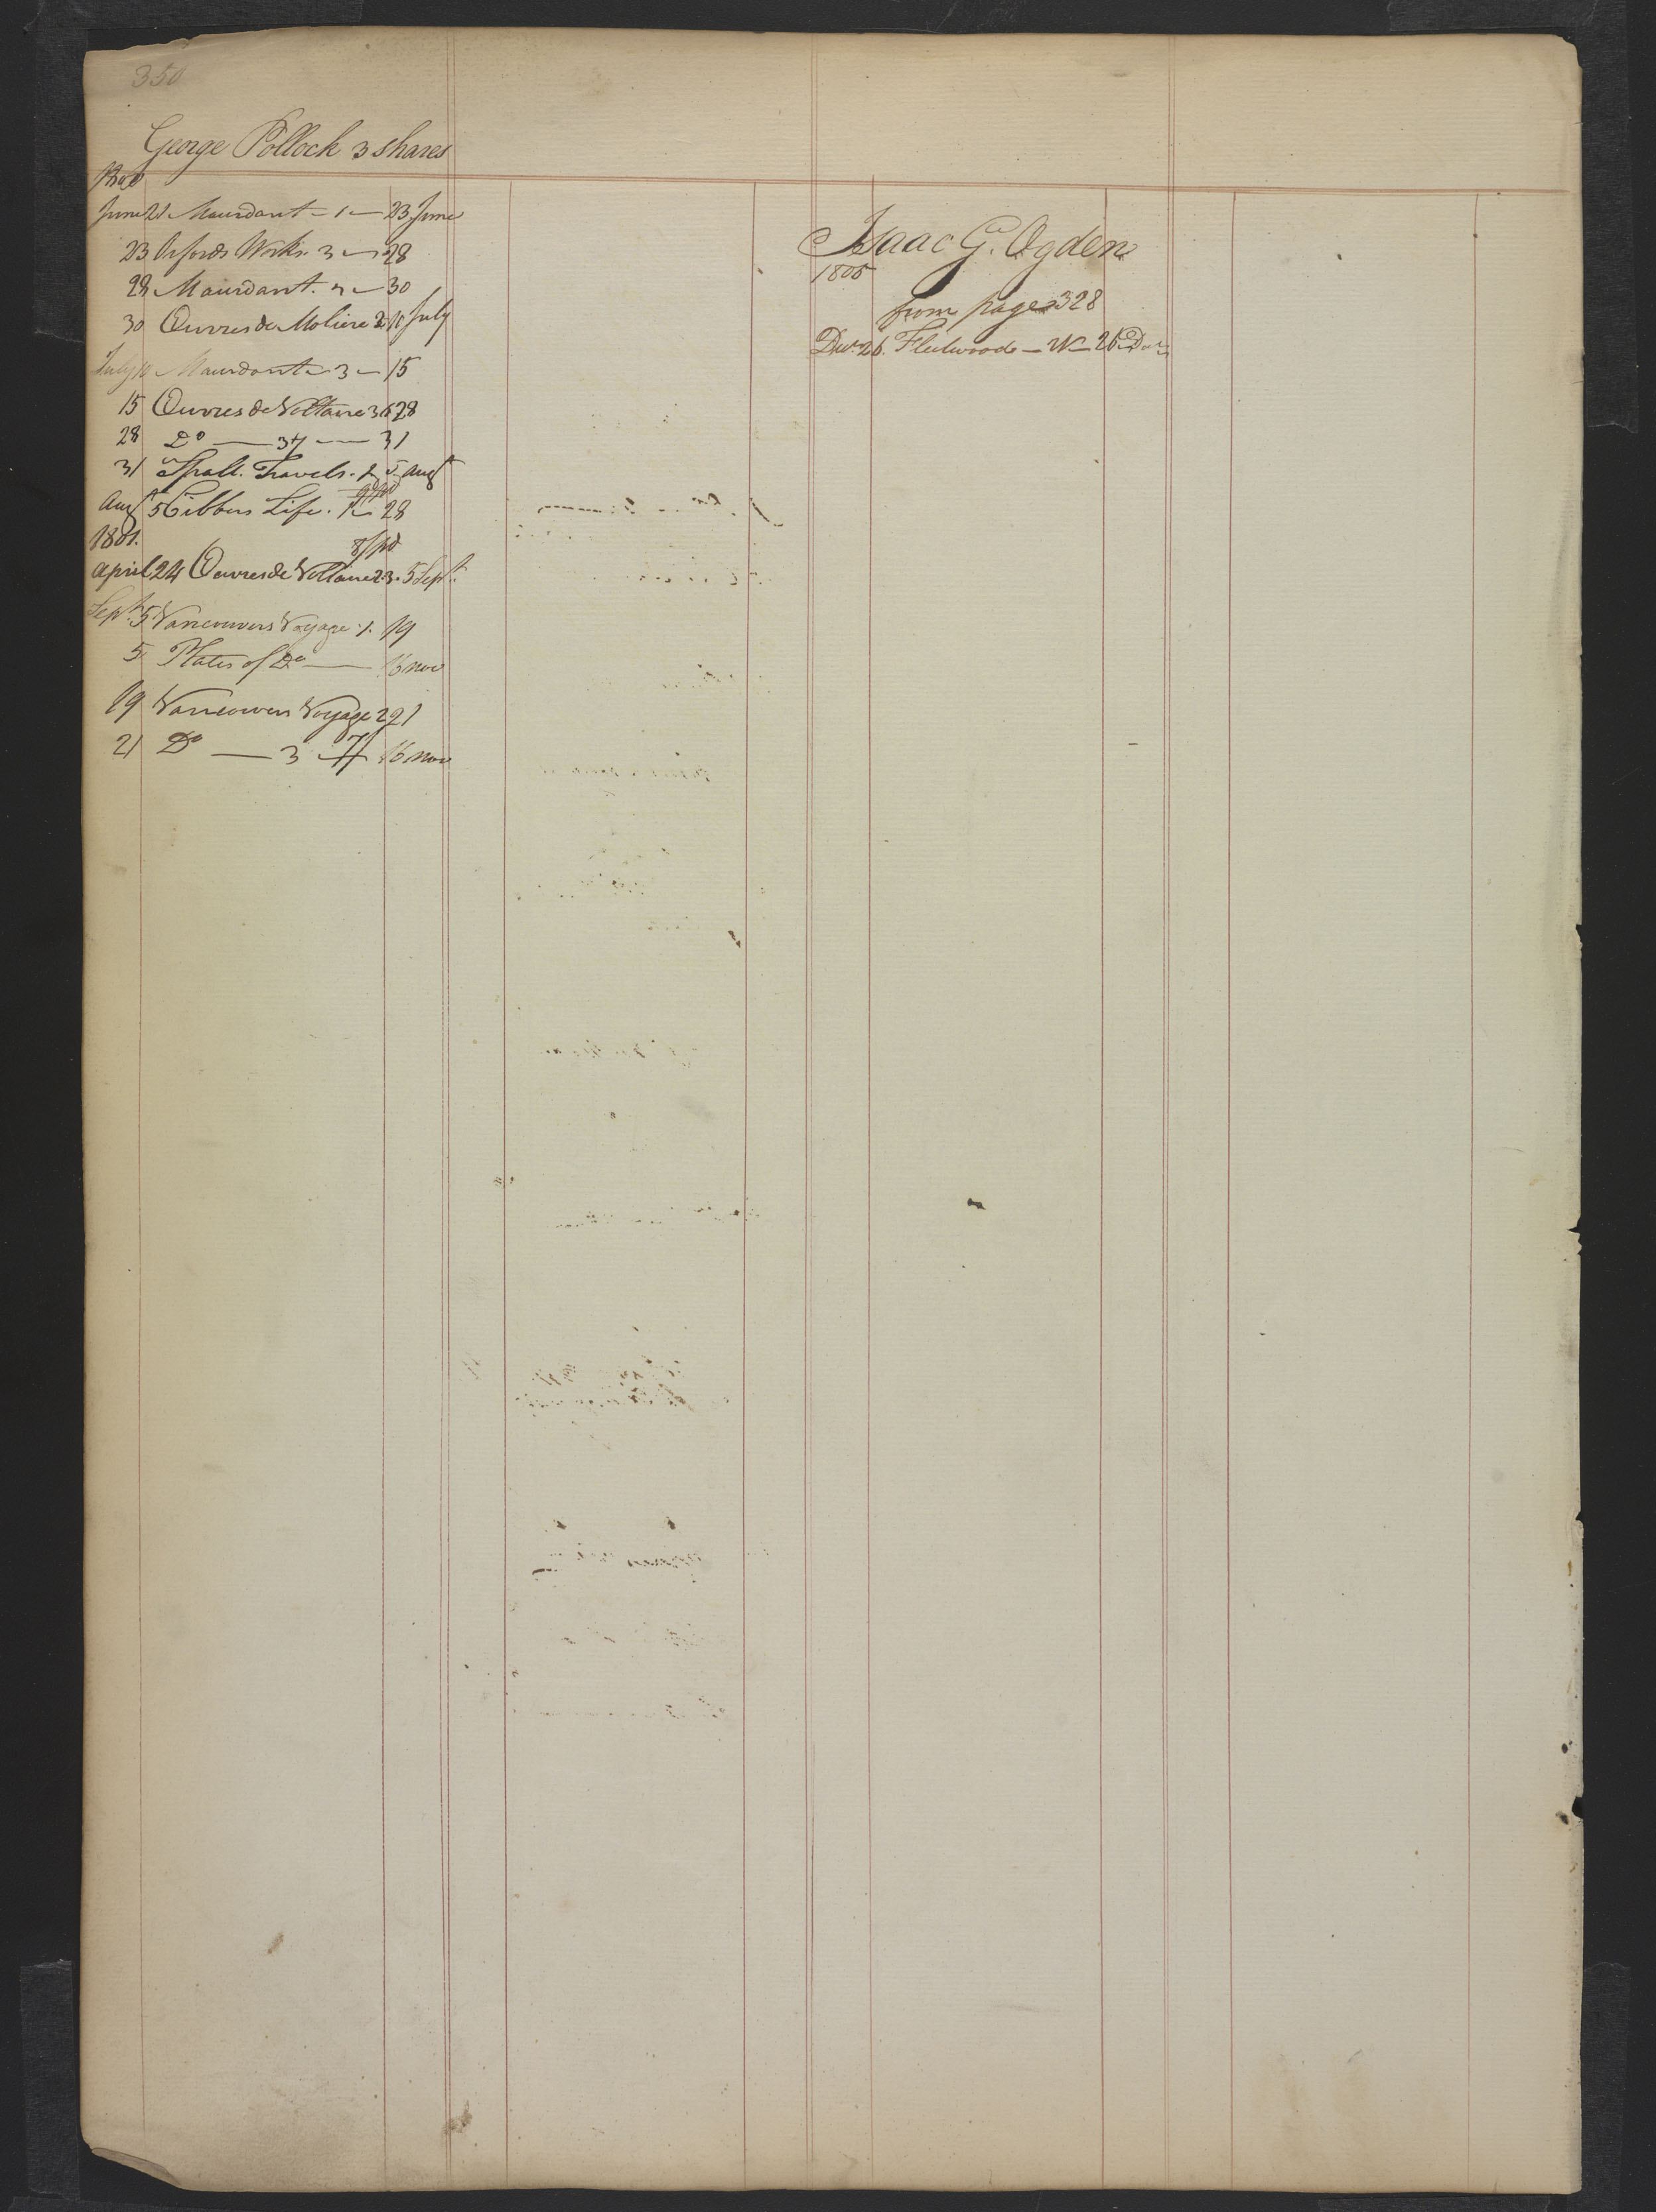 350
George Pollock 3 shares
1800
June 21 Mourdant - 1 - 23 June
23 Orfords Works. 3 - 28
28 Mourdant. 2 - 30
30 Œuvres de Moliere 2. 10 July
July 10 Mourdant - 3 - 15
15 Œuvres de Voltaire 36 28
28 Do — 37 — 31
31 Spall. Travels. 2 5 Augt
Augt 5 Cibbers Life. 1 - 28
1801.
8/pd
April 24 Oeuvres de Voltaire 23. 5 Sept.
Sept. 5 Vancouvers Voyage. 1. 19
5 Plates of Do — 16 nov
19 Vancouvers Voyage 2 21
21 Do — 3 16 nov
Isaac G. Ogden
1805
from page 328
Decr. 26. Fleetwood - 26 Do